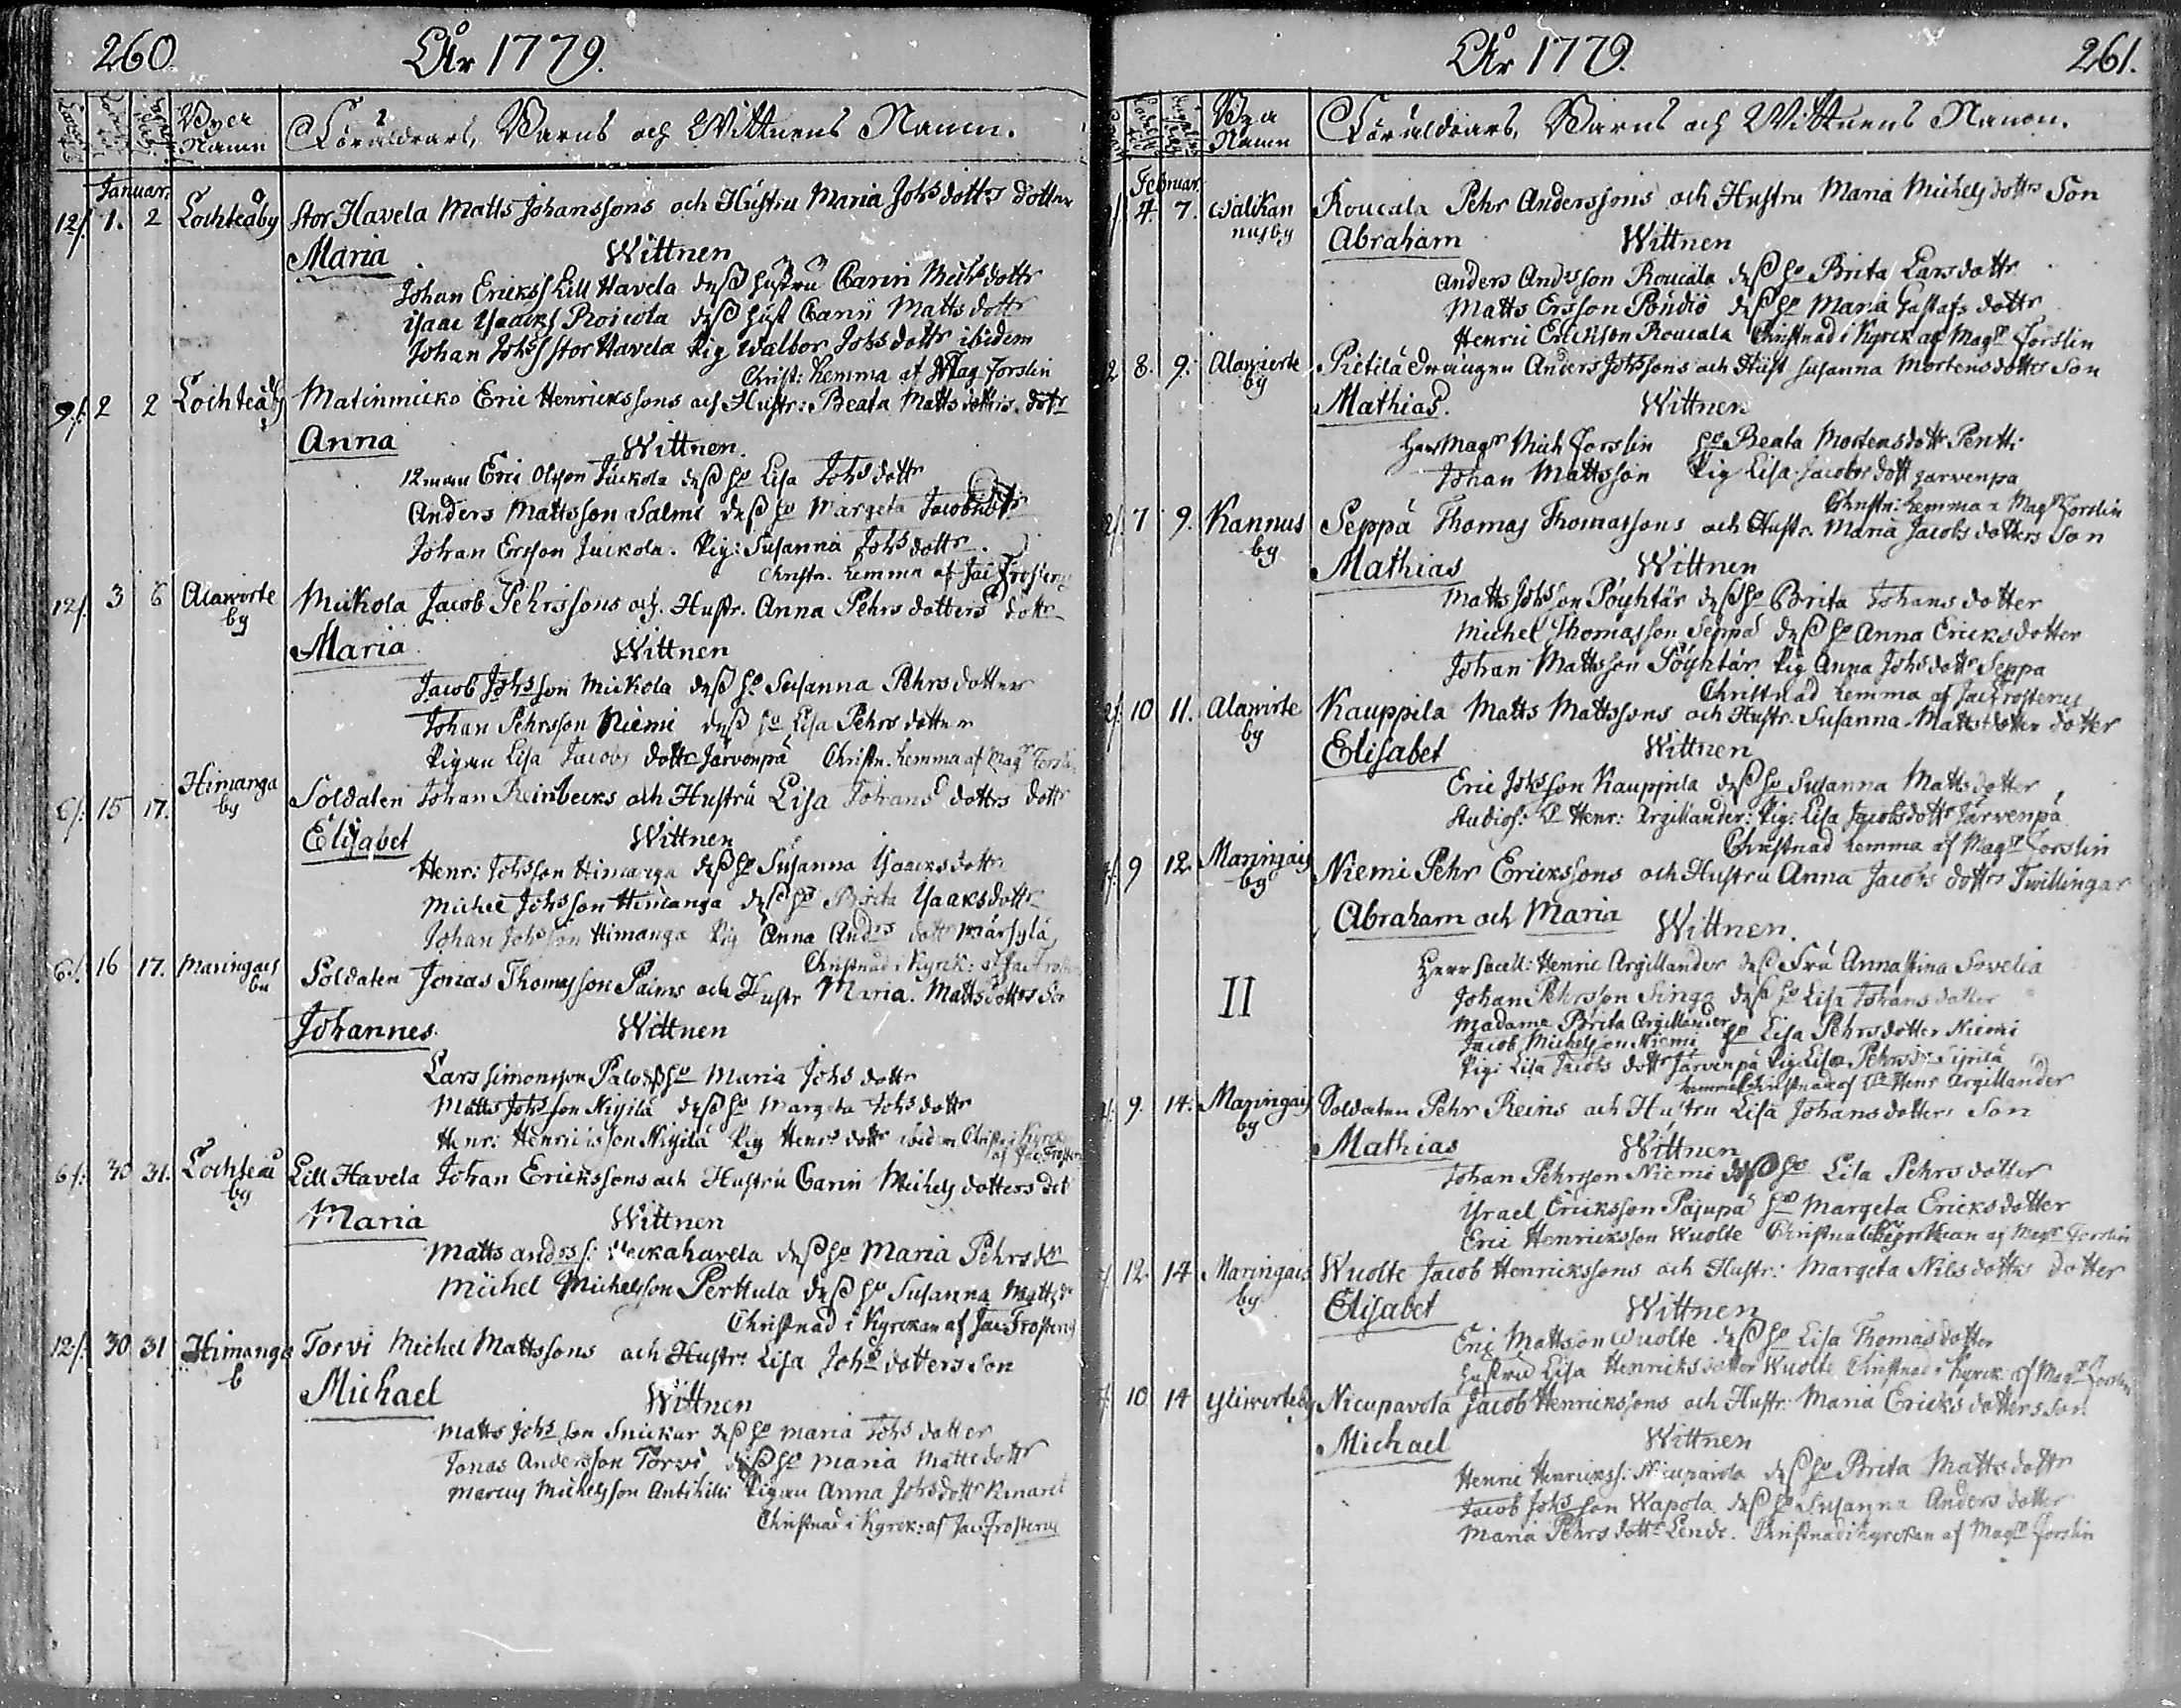 260.
År 1779.
Byer Namn
Föräldrars, Barns och Wittnens Namn.
Januar.
12/. 1. 2 Lochteåby Stor Havela Matts Johanssons och Hustru Maria Johs dottrs dotter
Maria Wittnen
Johan Erickss Lill Havela dess hustru Carin Michs dottr
Isaac Isaacks Roicola dess hust Carin Matts dottr
Johan Johs s Stor Havela Pig Walbor Johs dottr ibidem
Christ: hemma af Mag Forslin
9/. 2 2 Lochteåby Matinmicko Eric Henrickssons och Hustr: Beata Matts dottrs dotr
Anna Wittnen.
12man Eric Olsson Juckola dess ho Lisa Johs dottr
Anders Mattsson Salmi dess ho Margeta Jacobsdottr
Johan Ersson Juckola. Pig: Susanna Johs dottr.
Christn. hemma af Jac Frosterus
12/. 3 6 Alawirte by Mickola Jacob Pehrssons och Hustr. Anna Pehrs dotters dottr
Maria Wittnen
Jacob Johsson Mickola dess ho Susanna Pehrs dotter
Johan Pehrsson Niemi dess ho Lisa Pehrs dotter
Pigan Lisa Jacobs dottr Järvenpä Christn. hemma af Magr Forslin
6/. 15 17. Himanga by Soldaten Johan Reinbecks och Hustru Lisa Johans dottrs dottr
Elisabet Wittnen
Henr: Johsson Himanga dess ho Susanna Isaacks dottr
Michel Johsson Himanga dess ho Brita Isaaksdottr
Johan Johsson Himanga Pig Anna Andrs dottr Märsylä
Christnad i Kyrck: af Jac Frosterus
6/. 16 17. Maringais by Soldaten Jonas Thomasson Paims och Hustr Maria Mattsdottrs Son
Johannes Wittnen
Lars Simonsson Palo dess ho Maria Johs dottr
Matts Johsson Nigilä dess ho Margeta Johs dottr
Henr: Henricsson Nigilä Pig Henrs dottr ibidem Christn i Kyrck
af Jac. Frosterus
6/. 30 31. Lochteå by Lill Havela Johan Erickssons och Hustru Carin Michels dotters dot
Maria Wittnen
Matts andrss: havela dess ho Maria Pehrs dr
Michel Michelsson Perttula dess ho Susanna Matts dr
Christnad i Kyrckan af Jac Frosterus
12/. 30 31 Himanga b Torvi Michel Mattssons och Hustr. Lisa Johs dotters son
Michael Wittnen
Matts Johsson Snickar dess ho Maria Johs dotter
Jonas Andersson Torvi dess ho Maria Matts dottr
Marcus Michelsson Antikilli Pigan Anna Johsdottr Kinaret
Christnad i Kyrck: af Jac Frosterus
År 1779.
261.
Bya Namn
Föräldrars, Barns och Wittnens Namn.
Februar.
4. 7. Wälikannus by Roucala Pehr Anderssons och Hustru Maria Michels dottrs Son
Abraham Wittnen
Anders Andrsson Roucala dess ho Brita Larsdottr
Matts Ersson Pöndiö dess ho Maria Gustafs dottr
Henric Ericksson Roucala Christnad i Kyrck af Magr Forslin
8. 9. Alawirte by Pietilä drängen Anders Johssons och Hust Susanna Mortensdotters Son
Mathias. Wittnen
Herr Magr Mich Forslin ho Beata Mortensdottr Pentti
Johan Mattsson Pig Lisa Jacobs dott Jarvenpa
Christn: hemma a Magr Forslin
7 9. Kannus by Seppä Thomas Thomassons och Hustr. Maria Jacobs dotters Son
Mathias Wittnen
Matts Johsson Pöyhtär dess ho Brita Johans dotter
Michel Thomasson Seppä dess ho Anna Ericks dotter
Johan Mattsson Pöyhtär Pig Anna Johsdottr Seppa
Christnad hemma af Jac Frosterus
10 11. Alawirte by Kauppila Matts Mattssons och Hustr. Susanna Matts dotters dotter
Elisabet Wittnen
Eric Johsson Kauppila dess ho Susanna Matts dotter
Studios: Hr Henr: Argillander: Pig: Lisa Jacobsdottr Järvenpä
Christnad hemma af Magr Forslin
9 12. Maringais by Niemi Pehr Erickssons och Hustru Anna Jacobs dottrs Twillingar
Abraham och Maria Wittnen.
II
Herr Sacell: Henric Argillander dess Fru Annastina Sovelia
Johan Pehrsson Singo dess ho Lisa Johans dotter
Madame Brita Argillander
Jacob Michelsson Niemi ho Lisa Pehrsdotter Niemi
Pig: Lisa Jacobs dottr Järvenpä Pig Lisa Pehrs dr Sipilä
hemma Christnad af Hr Henr Argillander
9. 14. Maringais by Soldaten Pehr Reins och Hustru Lisa Johansdotters Son
Mathias Wittnen
Johan Pehrsson Niemi dess ho Lisa Pehrs dotter
Israel Ericksson Pajupä ho Margeta Ericksdotter
Eric Henricksson Wuolte Christnad i Kyrckan af Magr Forslin
12. 14 Maringais by Wuolte Jacob Henrickssons och Hustr: Margeta Nilsdotters dotter
Elisabet Wittnen
Eric Mattson Wuolte dess ho Lisa Thomas dotter
hustru Lisa Henricksdotter Wuolte Christnad i Kyrck af Magr Forslin
10 14 Yliwirteby Nicupavola Jacob Henrickssons och Hustr. Maria Ericks dotters son
Michael Wittnen
Henric Henrickss: Nicupavola dess ho Brita Matts dottr
Jacob Johsson Wapola dess ho Susanna Anders dotter
Maria Pehrs dottr Lende. Christnad i Kyrckan af Magr Forslin